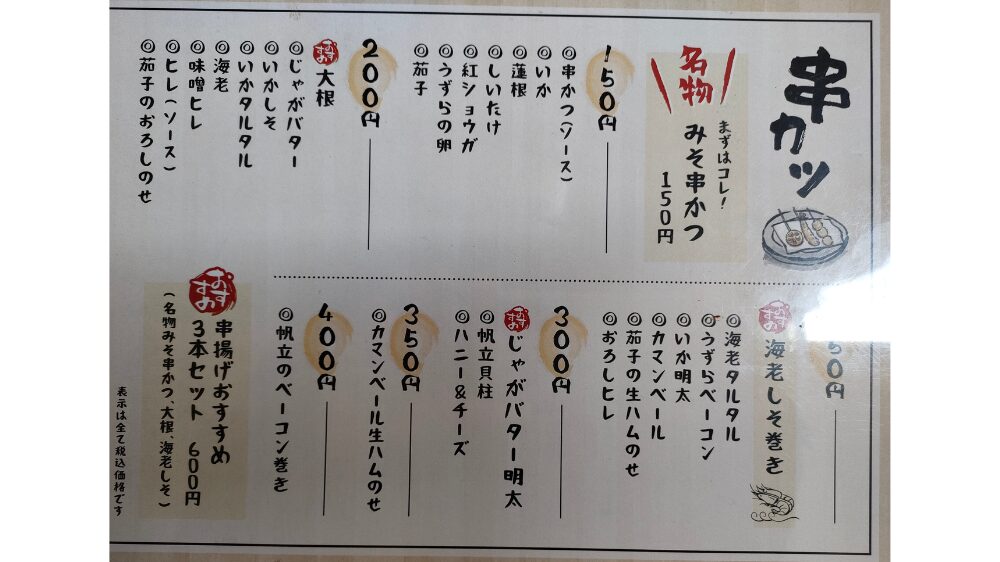 串カツ
名物
まずはコレ！
みそ串かつ
150円
150円
◎串かつ(ソース)
◎いか
◎蓮根
◎しいたけ
◎紅ショウガ
◎うずらの卵
◎茄子
200円
おすすめ 大根
◎じゃがバター
◎いかしそ
◎いかタルタル
◎海老
◎味噌ヒレ
◎ヒレ(ソース)
◎茄子のおろしのせ
50円
おすすめ 海老しそ巻き
◎海老タルタル
◎うずらベーコン
◎いか明太
◎カマンベール
◎茄子の生ハムのせ
◎おろしヒレ
300円
おすすめ じゃがバター明太
◎帆立貝柱
◎ハニー&チーズ
350円
◎カマンベール生ハムのせ
400円
◎帆立のベーコン巻き
おすすめ
串揚げおすすめ
3本セット 600円
(名物みそ串かつ、大根、海老しそ)
表示は全て税込価格です